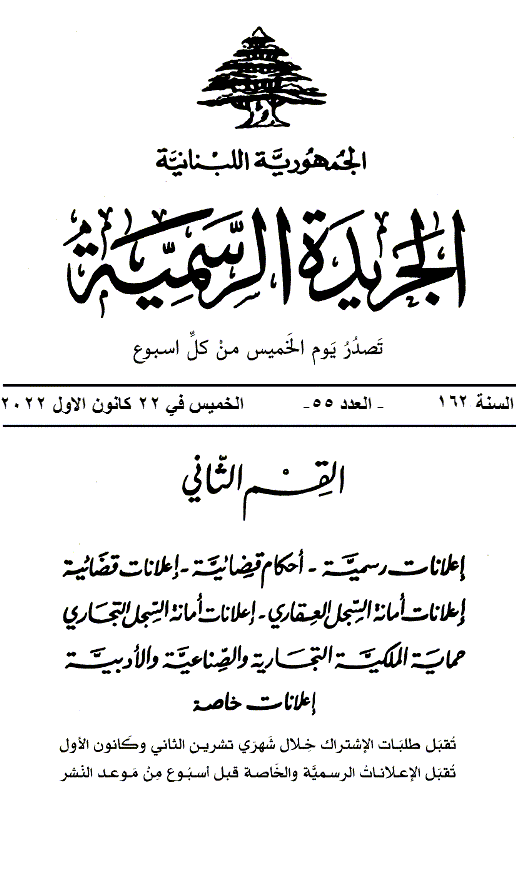 الجمهوريَّة اللبنانيَّة
الجريدة الرسميَّة
تَصدُرُ يَوم الخَميس منْ كلِّ اسبوع
السنة ١٦٢ - العدد ٥٥ - الخميس في ٢٢ كانون الاول ٢٠٢٢
القِسْم الثَّاني
إعلانات رسميَّة - أحكام قضائيَّة - إعلانات قضائية
إعلانات أمانة السِّجل العقاري - إعلانات أمانة السِّجل التجاري
حماية الملكيَّة التجارية والصِّناعيَّة والأدبيَّة
إعلانات خاصة
تُقبَل طلبَات الإشتراك خِلال شَهرَي تشرين الثاني وكَانون الأول
تُقبَل الإعلاناتُ الرسميَّة والخَاصة قبل أسبُوع مِنْ مَوعد النَشر